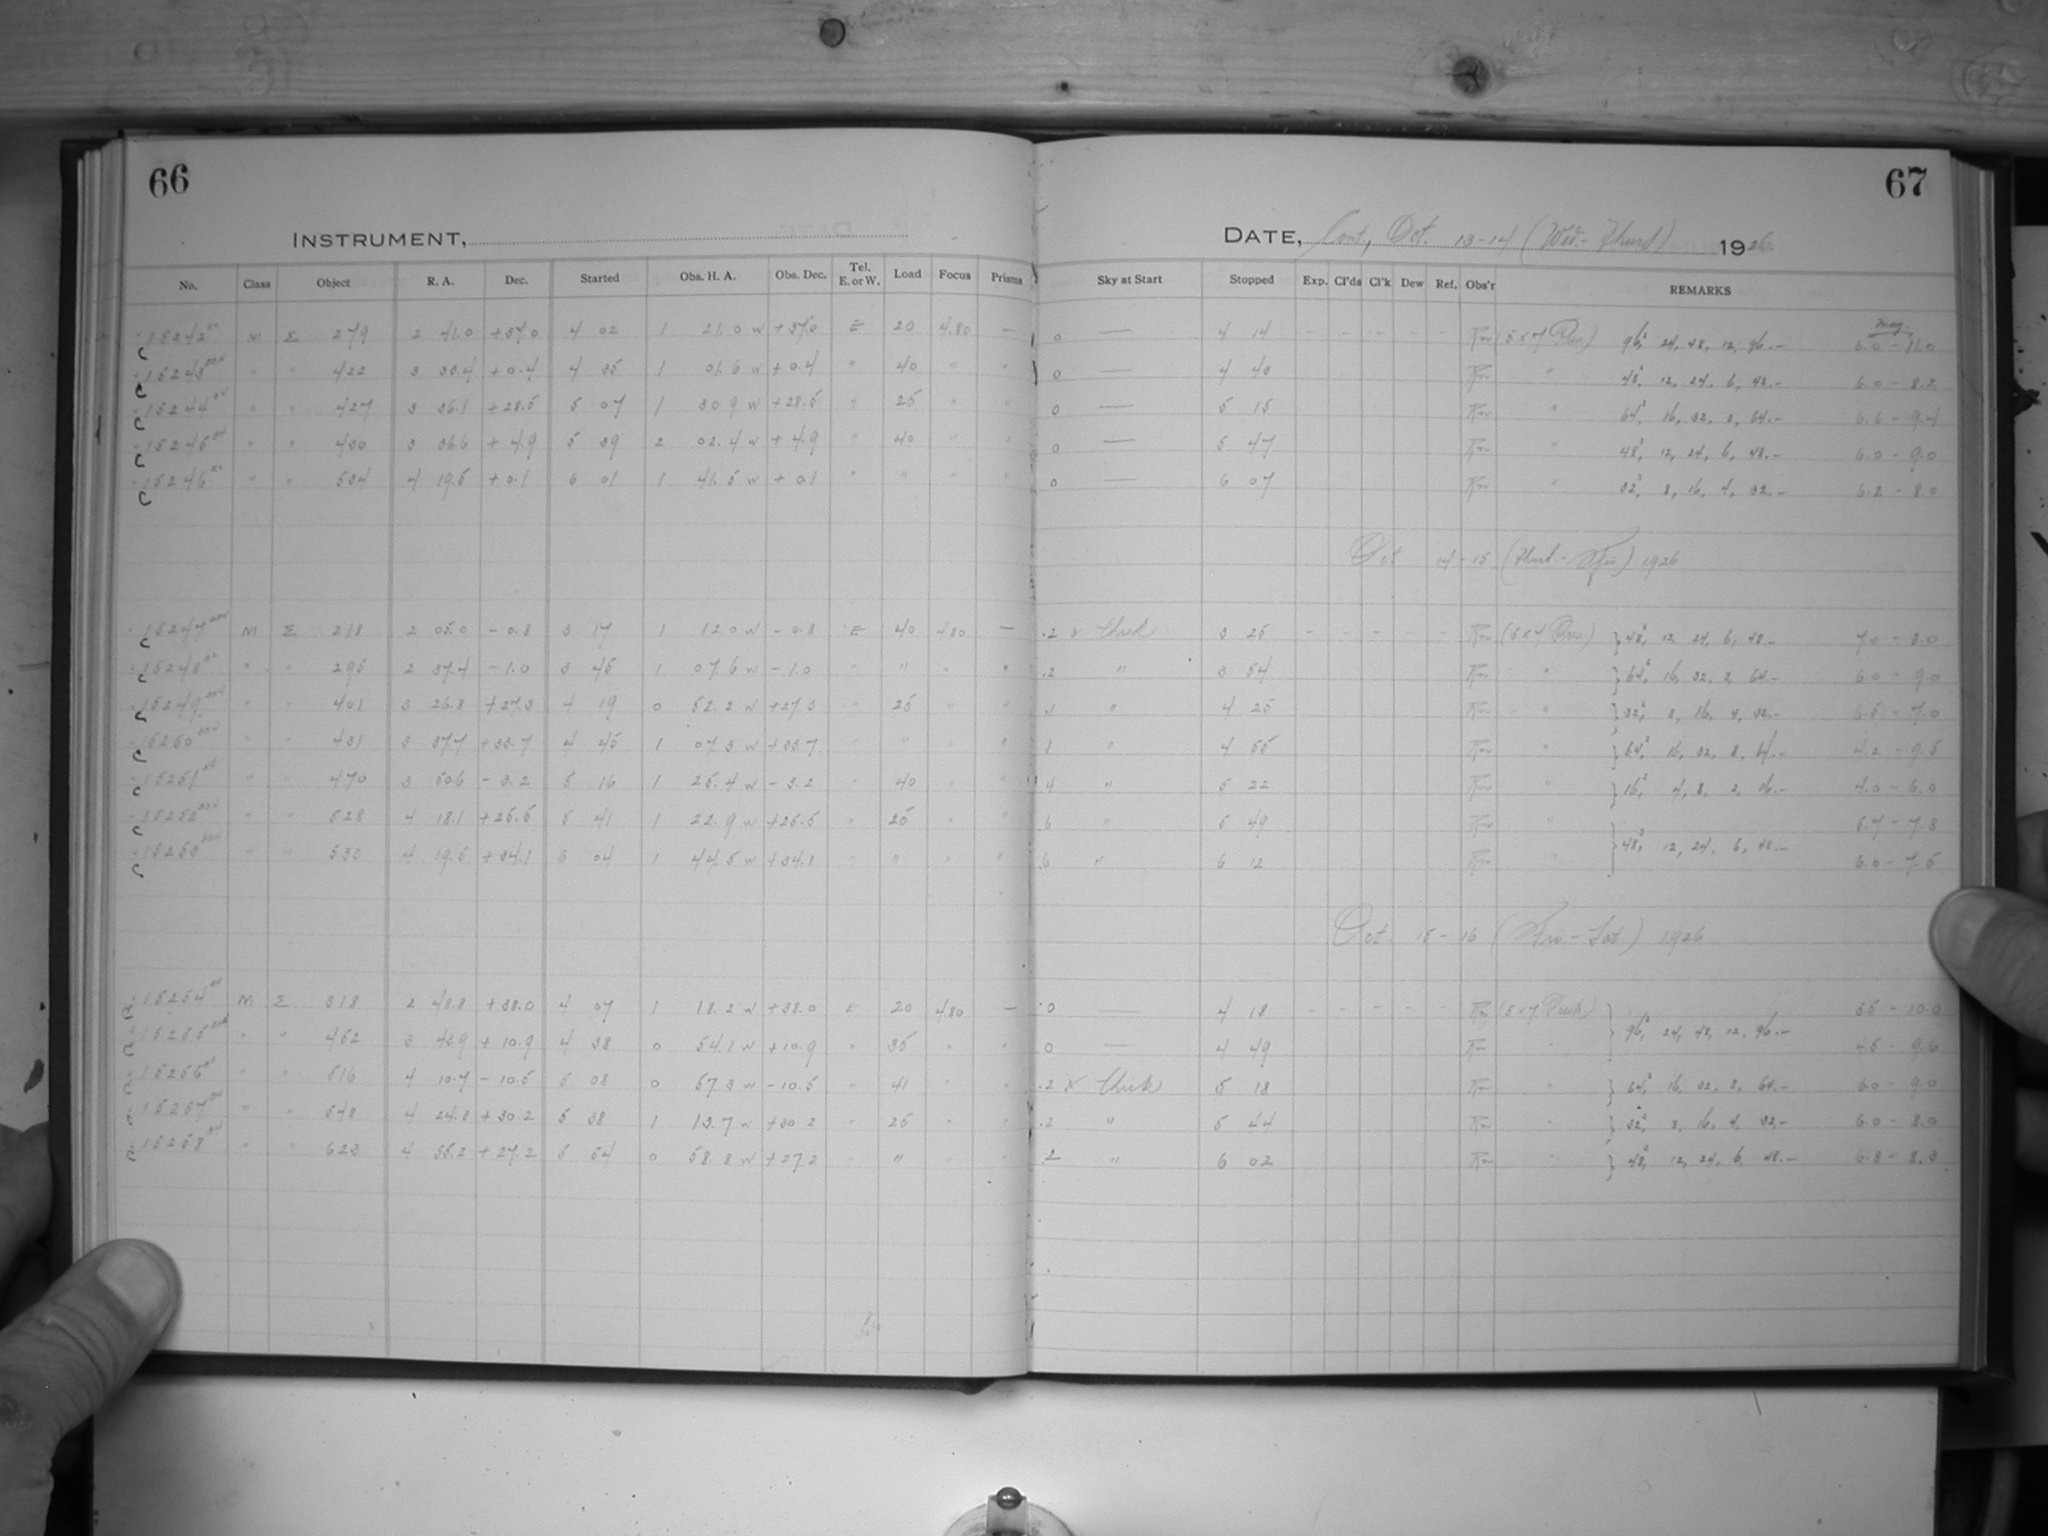 66
INSTRUMENT,
No. Class Object R. A. Dec. Started Obs. H. A. Obs. Dec. Tel. E. or W. Load Focus Prisms
15242 M Σ 279 2 41.0 +37.0 4 02 1 21.0 W +37.0 E 20 4.80 —
15243 " " 422 3 33.4 +0.4 4 35 1 01.6 W +0.4 " 40 " "
15244 " " 427 3 36.1 +28.5 5 07 1 30.9 W +28.5 " 25 " "
15245 " " 430 3 36.6 +4.9 5 39 2 02.4 W +4.9 " 40 " "
15246 " " 534 4 19.5 +0.1 6 01 1 41.5 W +0.1 " " " "
15247 M Σ 218 2 05.0 -0.8 3 17 1 12.0 W -0.8 E 40 4.80 —
15248 " " 295 2 37.4 -1.0 3 45 1 07.6 W -1.0 " " " "
15249 " " 401 3 26.8 +27.3 4 19 0 52.2 W +27.3 " 25 " "
15250 " " 431 3 37.7 +33.7 4 45 1 07.3 W +33.7 " " " "
15251 " " 470 3 50.6 -3.2 5 16 1 25.4 W -3.2 " 40 " "
15252 " " 528 4 18.1 +25.5 5 41 1 22.9 W +25.5 " 25 " "
15253 " " 533 4 19.5 +34.1 6 04 1 44.5 W +34.1 " " " "
15254 M Σ 318 2 48.8 +38.0 4 07 1 18.2 W +38.0 E 20 4.80 —
15255 " " 452 3 43.9 +10.9 4 38 0 54.1 W +10.9 " 35 " "
15256 " " 516 4 10.7 -10.5 5 08 0 57.3 W -10.5 " 41 " "
15257 " " 548 4 24.3 +30.2 5 38 1 13.7 W +30.2 " 25 " "
15258 " " 623 4 55.2 +27.2 5 54 0 58.8 W +27.2 " " " "
67
DATE, Cont., Oct. 13-14 (Wed.-Thurs.) 1926
Sky at Start Stopped Exp. Cl'ds Cl'k Dew Ref. Obs'r REMARKS
mag.
0 — 4 14 - - - - - (5x7 ) 96, 24, 48, 12, 96.- 6.0 - 11.0
0 — 4 43 " 48, 12, 24, 6, 48.- 6.0 - 8.2
0 — 5 15 " 64, 16, 32, 8, 64.- 6.6 - 9.4
0 — 5 47 " 48, 12, 24, 6, 48.- 6.0 - 9.0
0 — 6 07 " 32, 8, 16, 4, 32.- 6.2 - 8.0
Oct 14-15 (Thurs.-Fri.) 1926
.2 x thick 3 25 - - - - - (5x7 ) 48, 12, 24, 6, 48.- 7.0 - 8.0
.2 " 3 54 " 64, 16, 32, 8, 64.- 6.0 - 9.0
" 4 25 " 32, 8, 16, 4, 32.- 6.5 - 7.0
1 " 4 55 " 64, 16, 32, 8, 64.- 4.2 - 9.5
4 " 5 22 " 16, 4, 8, 2, 16.- 4.0 - 6.0
6 " 5 49 " 5.7 - 7.3
48, 12, 24, 6, 48.-
6 " 6 12 " 6.0 - 7.5
Oct. 15-16 (Fri.-Sat.) 1926
0 — 4 18 - - - - - (5x7 ) 5.5 - 10.0
96, 24, 48, 12, 96.-
0 — 4 49 " 4.5 - 9.6
.2 x thick 5 18 " 64, 16, 32, 8, 64.- 6.0 - 9.0
.2 " 5 44 " 32, 8, 16, 4, 32.- 6.0 - 8.0
.2 " 6 02 " 48, 12, 24, 6, 48.- 6.8 - 8.3